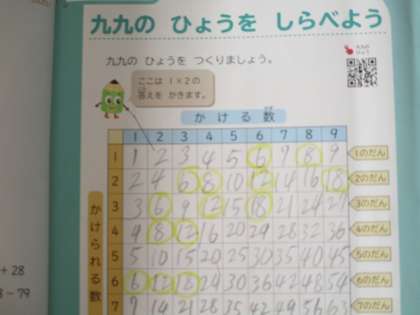 九九の ひょうを しらべよう
九九の ひょうを つくりましょう。
九九の
ひょう
ここは 1×2の
答えを かきます。
かける数
1 2 3 4 5 6 7 8 9
1 1 2 3 4 5 6 7 8 9 1のだん
2 2 4 6 8 10 12 14 16 18 2のだん
3 3 6 9 12 15 18 21 24 27 3のだん
4 4 8 12 16 20 24 28 32 36 4のだん
5 5 10 15 20 25 30 35 40 45 5のだん
6 6 12 18 24 30 36 42 48 54 6のだん
7 7 14 21 28 35 42 49 56 63 7のだん
かけられる数
+ 28
- 79